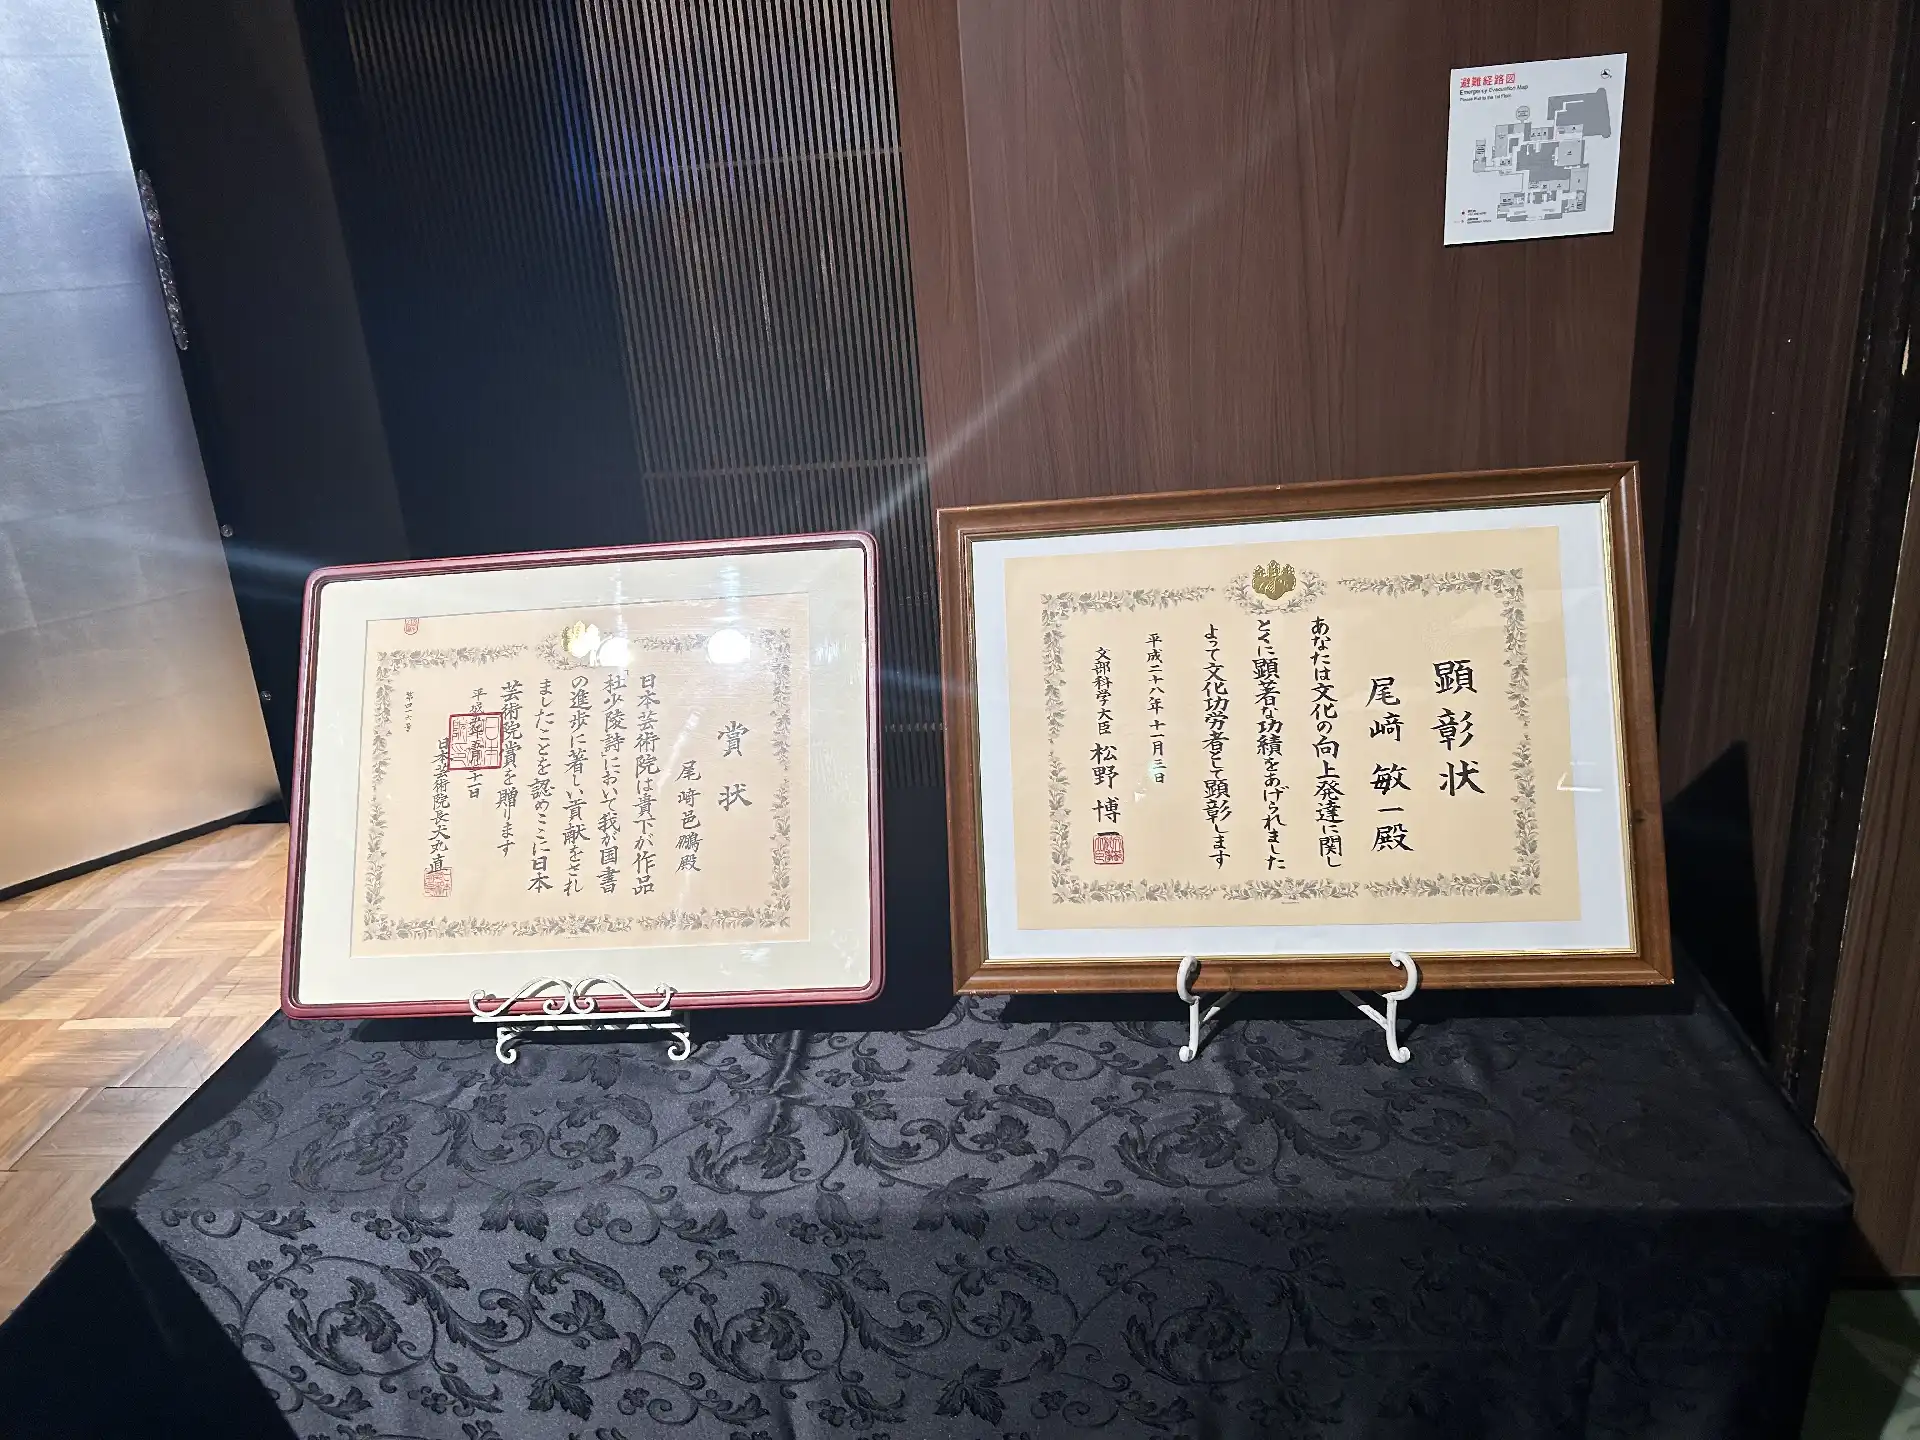 避難経路図
Emergency Evacuation Map
顕彰状
尾﨑敏一殿
あなたは文化の向上発達に関し
とくに顕著な功績をあげられました
よって文化功労者として顕彰します
平成二十八年十一月三日
文部科学大臣 松野博一
賞状
尾﨑邑鵬殿
日本芸術院は貴下が作品
杜少陵詩において我が国書
の進歩に著しい貢献をされ
ましたことを認めここに日本
芸術院賞を贈ります
日本芸術院長犬丸直
第四一六号